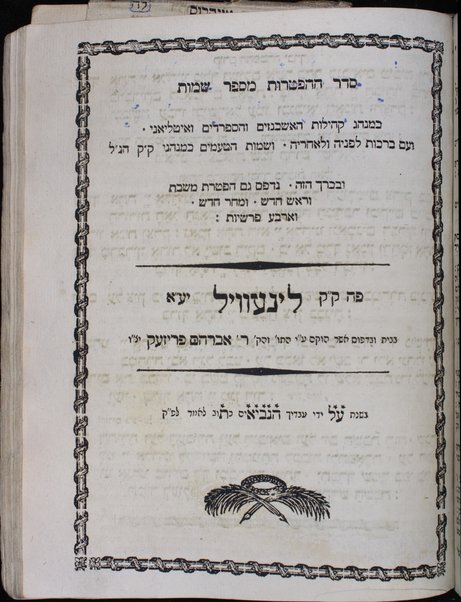 סדר ההפטרות מספר שמות
כמנהג קהילות האשכנזים והספרדים ואיטליאני ·
ועם ברכות לפניה ולאחריה · ושמות הטעמים כמנהגי ק״ק הנ״ל
ובכרך הזה · נדפס גם הפטרת משבת
וראש חדש · ומחר חדש ·
וארבע פרשיות :
פה ק״ק לינעוויל יע״א
בבית ובדפוס אשר הוקם ע״י התו׳ והק׳ ר׳ אברהם פריזעק יצ״ו
בשנת על ידי עבדיך הנביאים כתוב לאמר לפ״ק